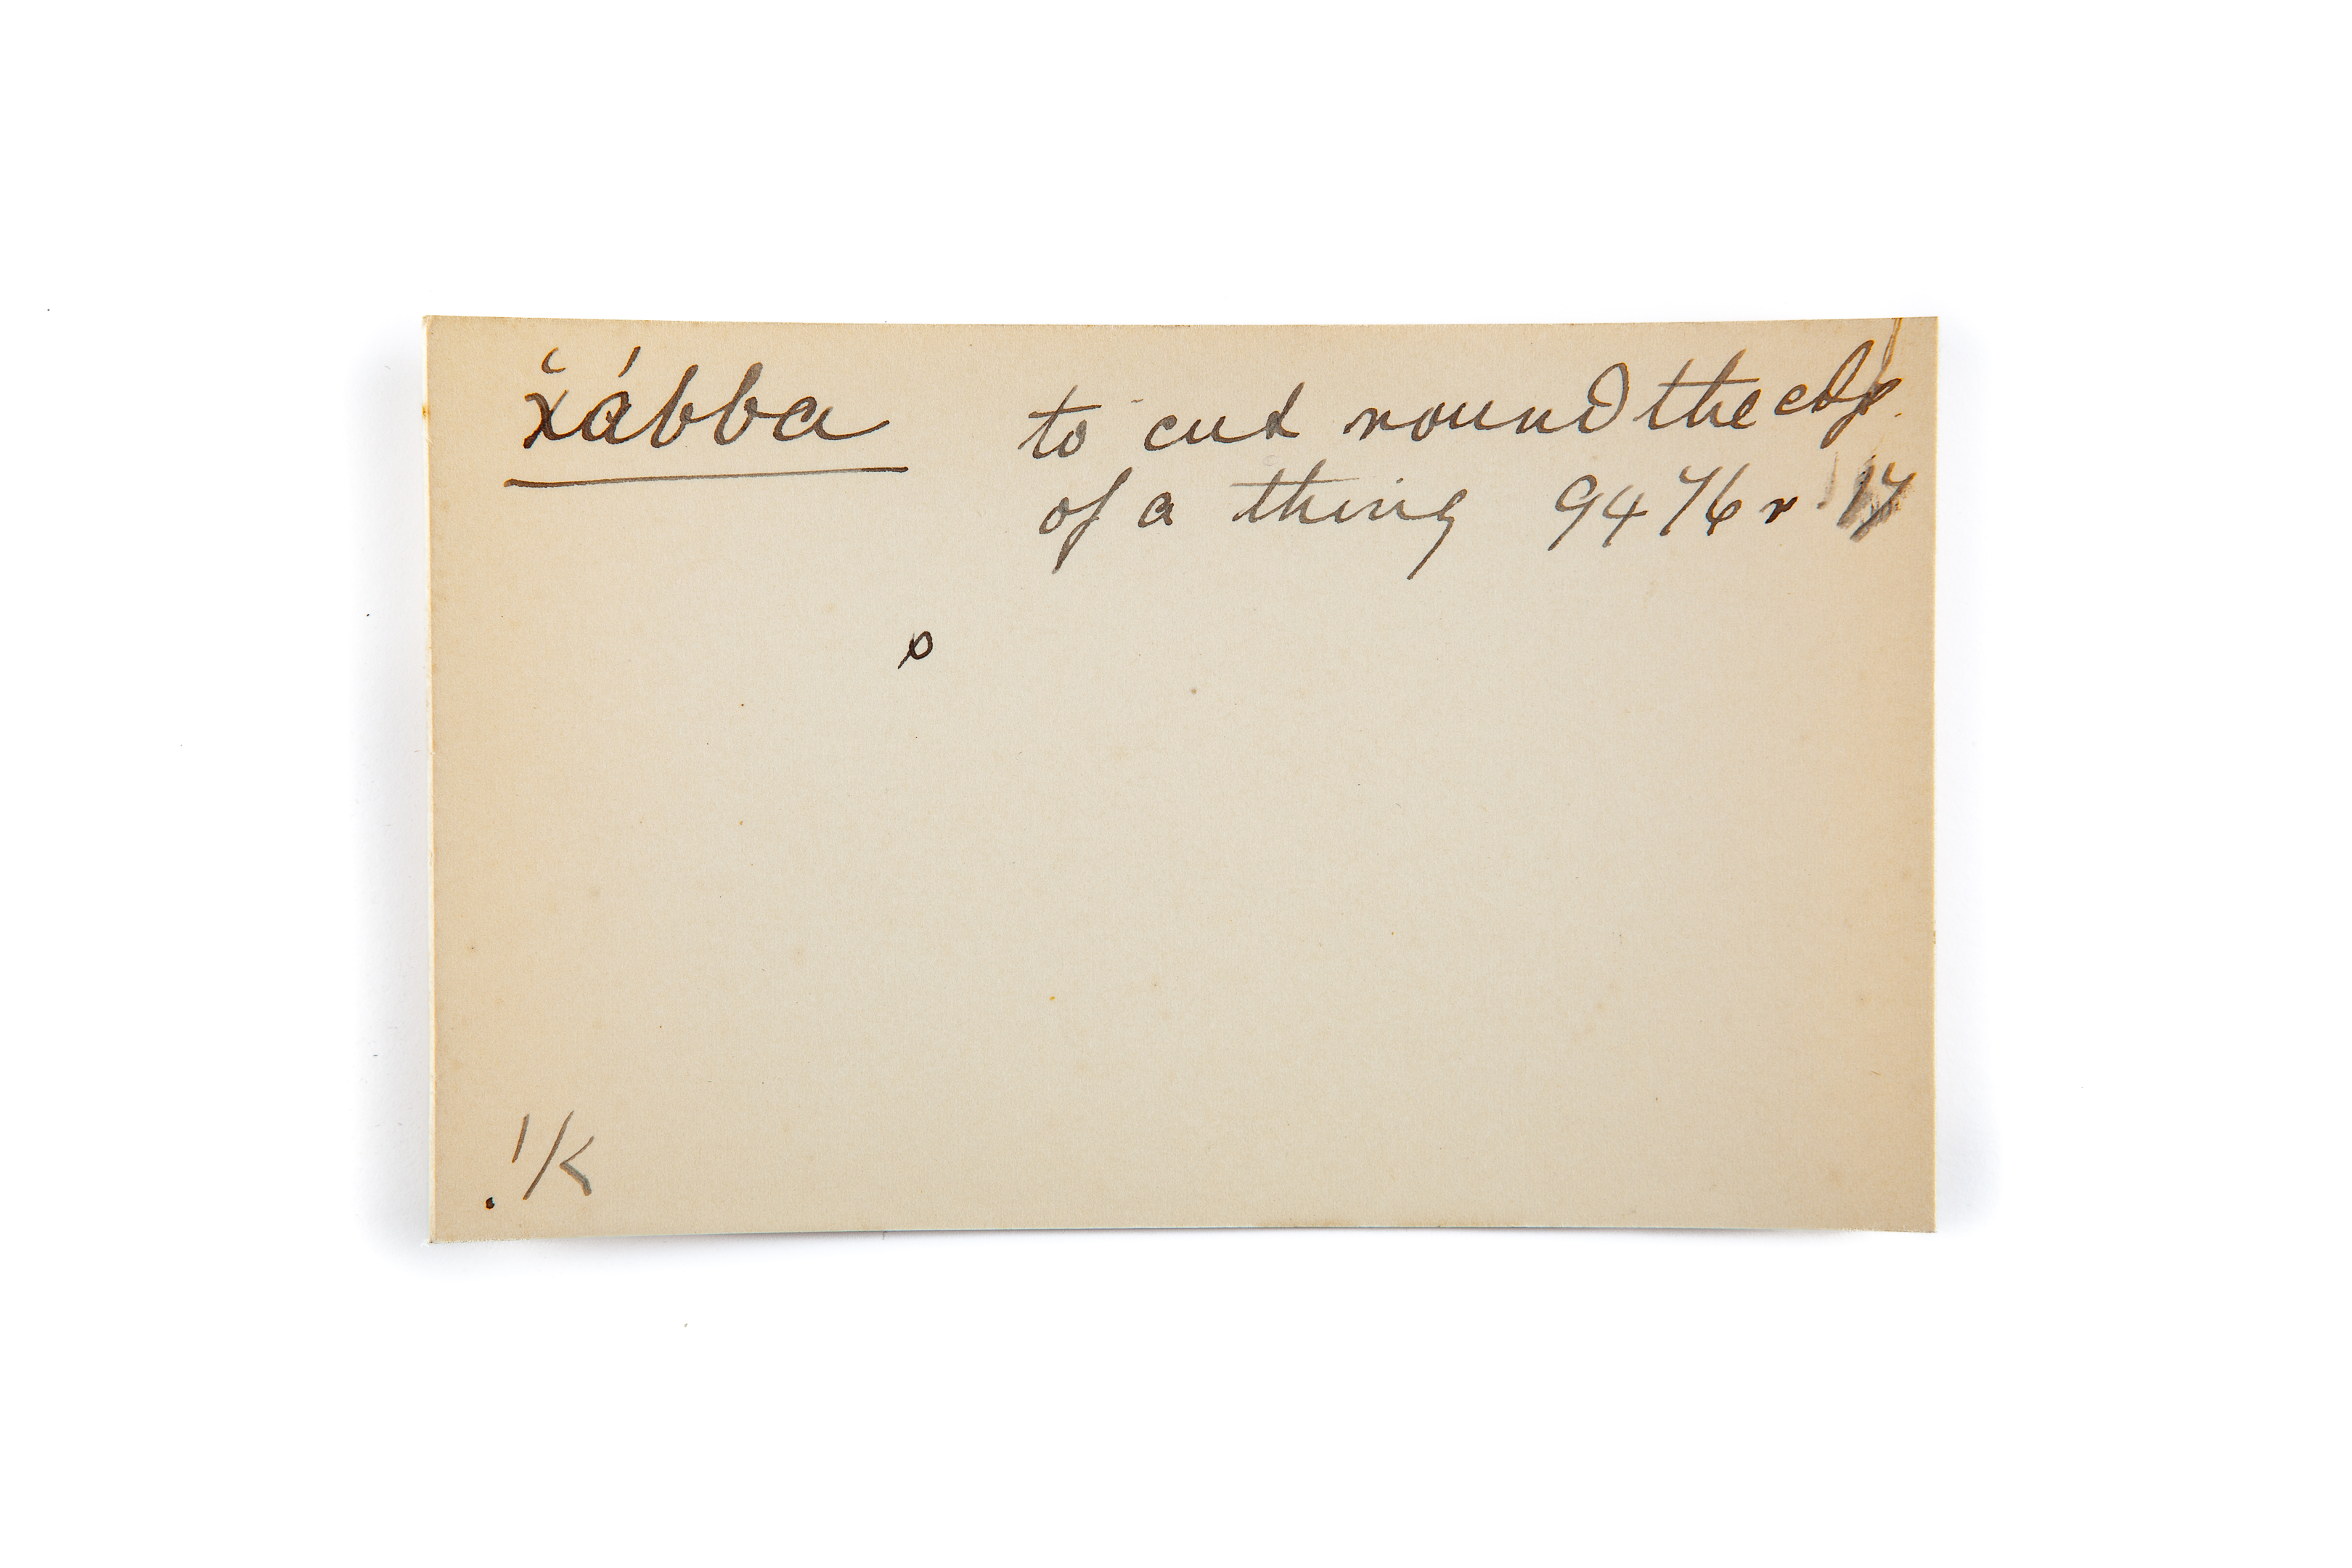 x̆ábba to cut round the edge
of a thing 9476 r 17
!K